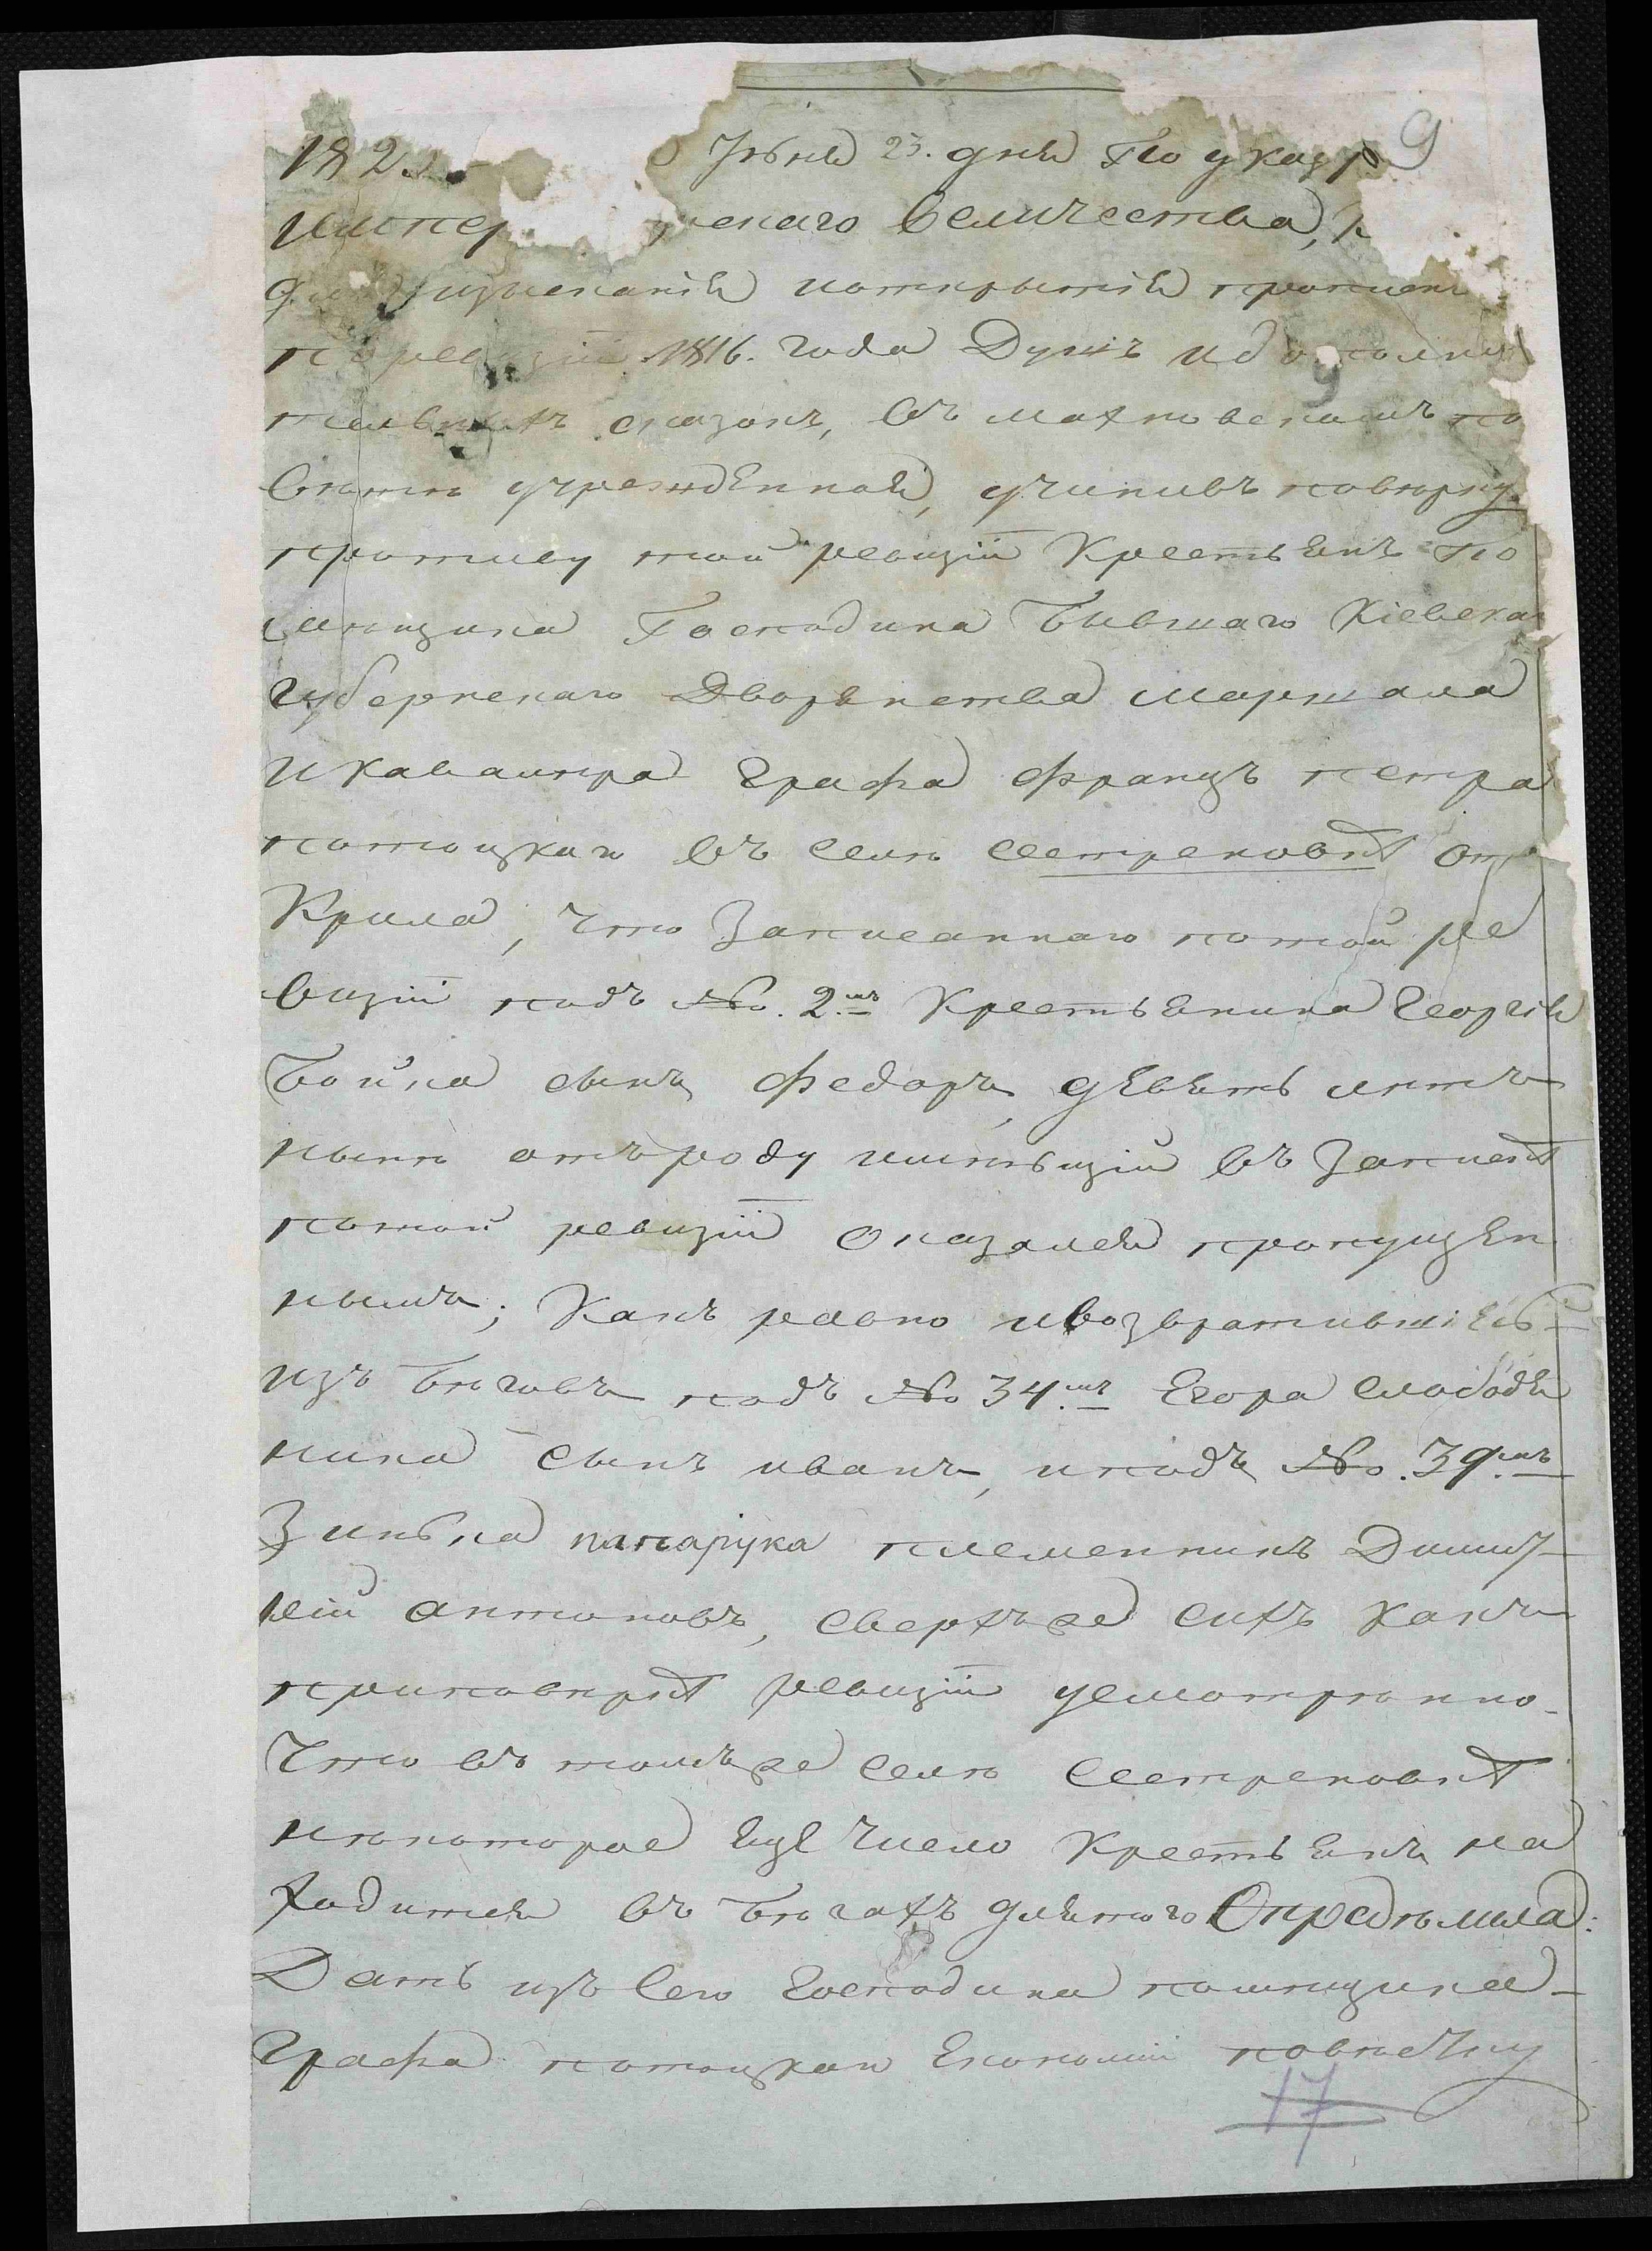 182 Іюня 23. дня По указу 9
Импер скаго Величества,
для изысканія иоткрытія прописн
поревизіи 1816. года Душъ идополни
тельныхъ сказокъ, въ махновскомъ по
ветѣ учрежденной, учинивъ повѣрку
противу той ревизіи Крестьянъ По
мѣщика Господина Бывшаго Кіевска
губернскаго Дворянства маршала
икавалѣра Графа Францъ петра
потоцкаго въ селѣ Сестреновкѣ От
Крила, что Записаннаго потой ре
визіи подъ №. 2мъ Крестьянина Георгія
Бойка сынъ Федоръ девять лѣтъ
нынѣ отъроду имѣющій въ Запискѣ
потой ревизіи Оказался пропущен
нымъ; Какъ равно ивозвратившіесь
изъ Бѣговъ подъ № 34мъ Егора Слободя
ника Сынъ иванъ, иподъ №. 39мъ
Зинька папарука племенникъ Дими
рій антоновъ, Сверхъже Сихъ Какъ
приповѣркѣ ревизіи усмотрѣнно
Что въ томъже Селѣ Сестреновкѣ
нѣкоторое Еще Число Крестьянъ на
ходится въ Бѣгахъ длятого Опредѣлила:
Дать изъ Сего Господина помѣщика
Графа потоцкаго Економіи повѣстку
17